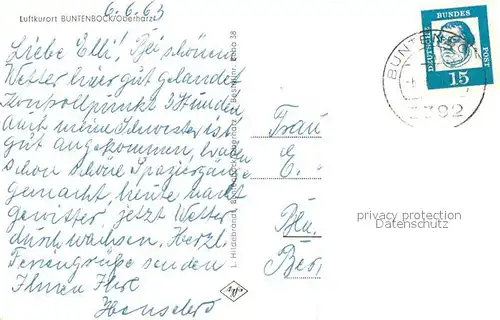 6.6.63
Luftkurort BUNTENBOCK/Oberharz
Liebe Elli! Bei schönem
Wetter hier gut gelandet
3 Stunden
Auch meine Schwester ist
gut angekommen, haben
schon schöne Spaziergänge
gemacht, heute nacht
Gewitter jetzt Wetter
durchwachsen. Herzl.
Feriengrüße senden
Ihnen Ihre
L. Hildebrandt, Buntenbock/Oberharz Bestellnr. Bubo 38
BUNTENBOCK
3392
DEUTSCHE BUNDESPOST
15
Frau
E.
privacy protection
Datenschutz